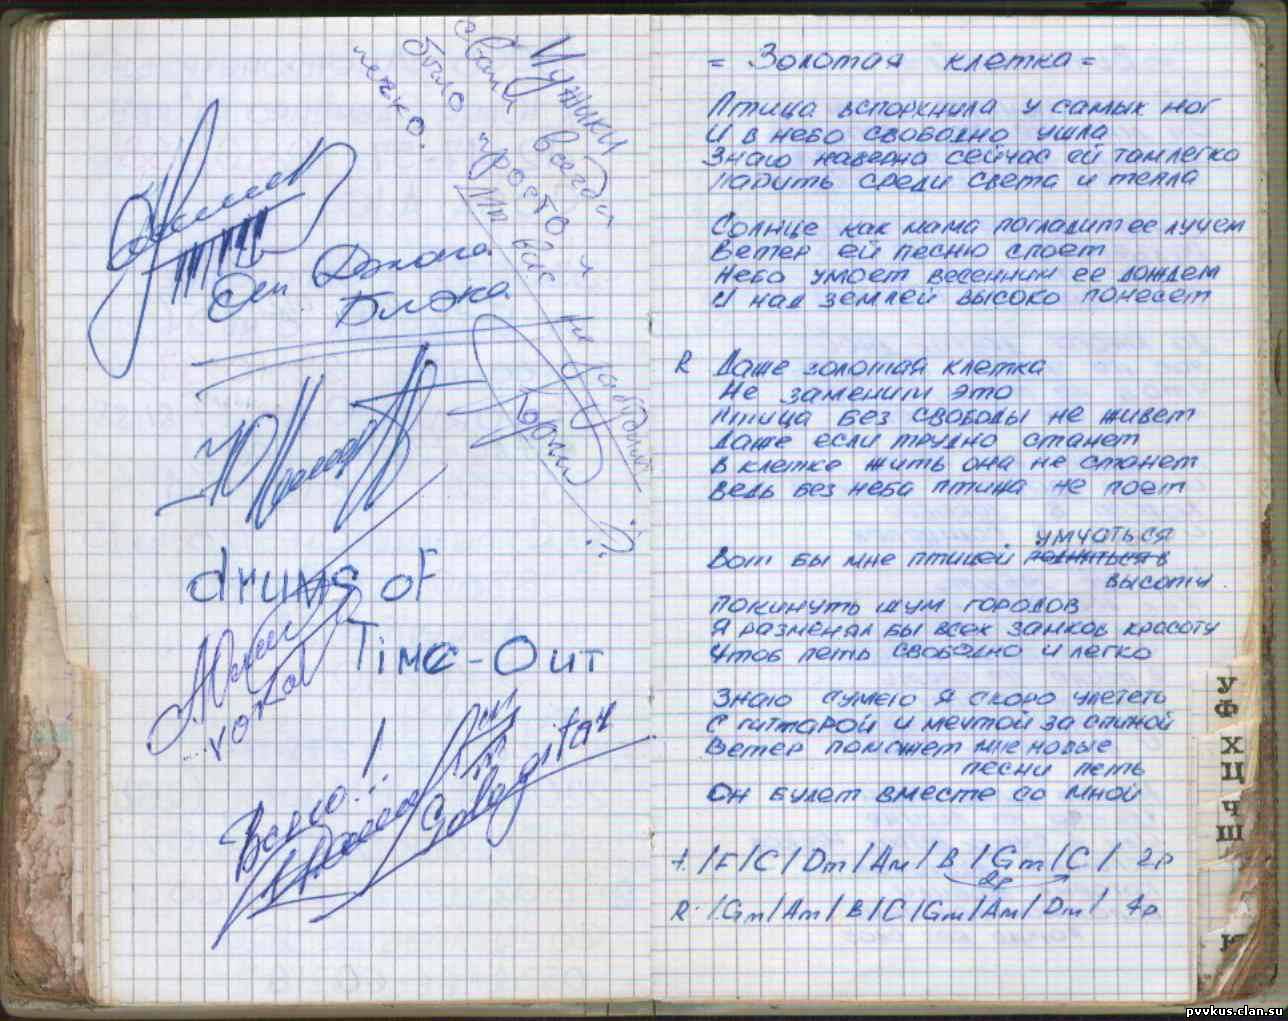 Мужики
с вами всегда
было просто и
легко.
Мы вас не забудем
от Джона
Блэка
drums of
Time-Out
вокал
Всего!
Solo gitar
= Золотая клетка =
Птица вспорхнула у самых ног
И в небо свободно ушла
Знаю наверна сейчас ей там легко
Парить среди света и тепла
Солнце как мама погладит ее лучем
Ветер ей песню споет
Небо умоет весенним ее дождем
И над землей высоко понесет
R Даже золотая клетка
Не заменит это
Птица без свободы не живет
Даже если трудно станет
В клетке жить она не станет
Ведь без неба птица не поет
умчаться
Вот бы мне птицей подняться в
высоты
Покинуть шум городов
Я разменял бы всех замков красоту
Чтоб петь свободно и легко
Знаю сумею я скоро улететь
С гитарой и мечтой за спиной
Ветер поможет мне новые
песни петь
Он будет вместе со мной
A: | F | C | Dm | Am | B | Gm | C | 2р
2р
R: | Gm | Am | B | C | Gm | Am | Dm | 4р
У
Ф
Х
Ц
Ч
Ш
pvvkus.clan.su